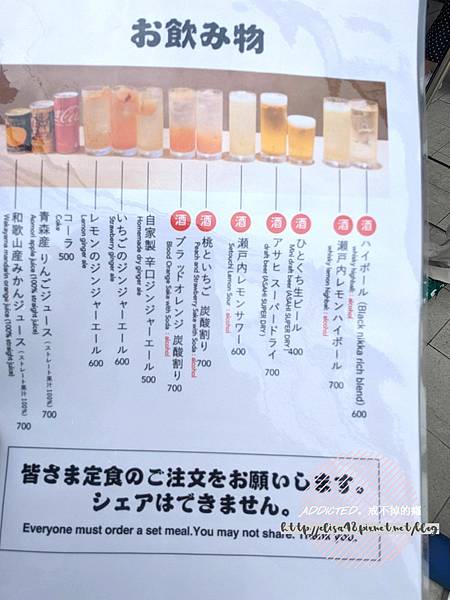 お飲み物
酒 ハイボール (Black nikka rich blend) 600
whisky highball : alcohol
酒 瀬戸内レモンハイボール 700
whisky lemon highball : alcohol
酒 ひとくち生ビール 400
Mini draft beer (ASAHI SUPER DRY)
酒 アサヒ スーパードライ 700
draft beer (ASAHI SUPER DRY)
酒 瀬戸内レモンサワー 600
Setouchi Lemon Sour : alcohol
酒 桃といちご 炭酸割り 700
Peach and Strawberry Sake with Soda : alcohol
酒 ブラッドオレンジ 炭酸割り 700
Blood Orange Sake with Soda : alcohol
自家製 辛口ジンジャーエール 500
Homemade dry ginger ale
いちごのジンジャーエール 600
Strawberry ginger ale
レモンのジンジャーエール 600
Lemon ginger ale
コーラ 500
Coke
青森産 りんごジュース (ストレート果汁100%) 700
Aomori apple juice (100% straight juice)
和歌山産みかんジュース (ストレート果汁100%) 700
Wakayama mandarin orange juice (100% straight juice)
皆さま定食のご注文をお願いします。
シェアはできません。
Everyone must order a set meal.You may not share. Thank you.
ADDICTED。戒不掉的癮
http://elisa42.pixnet.net/blog